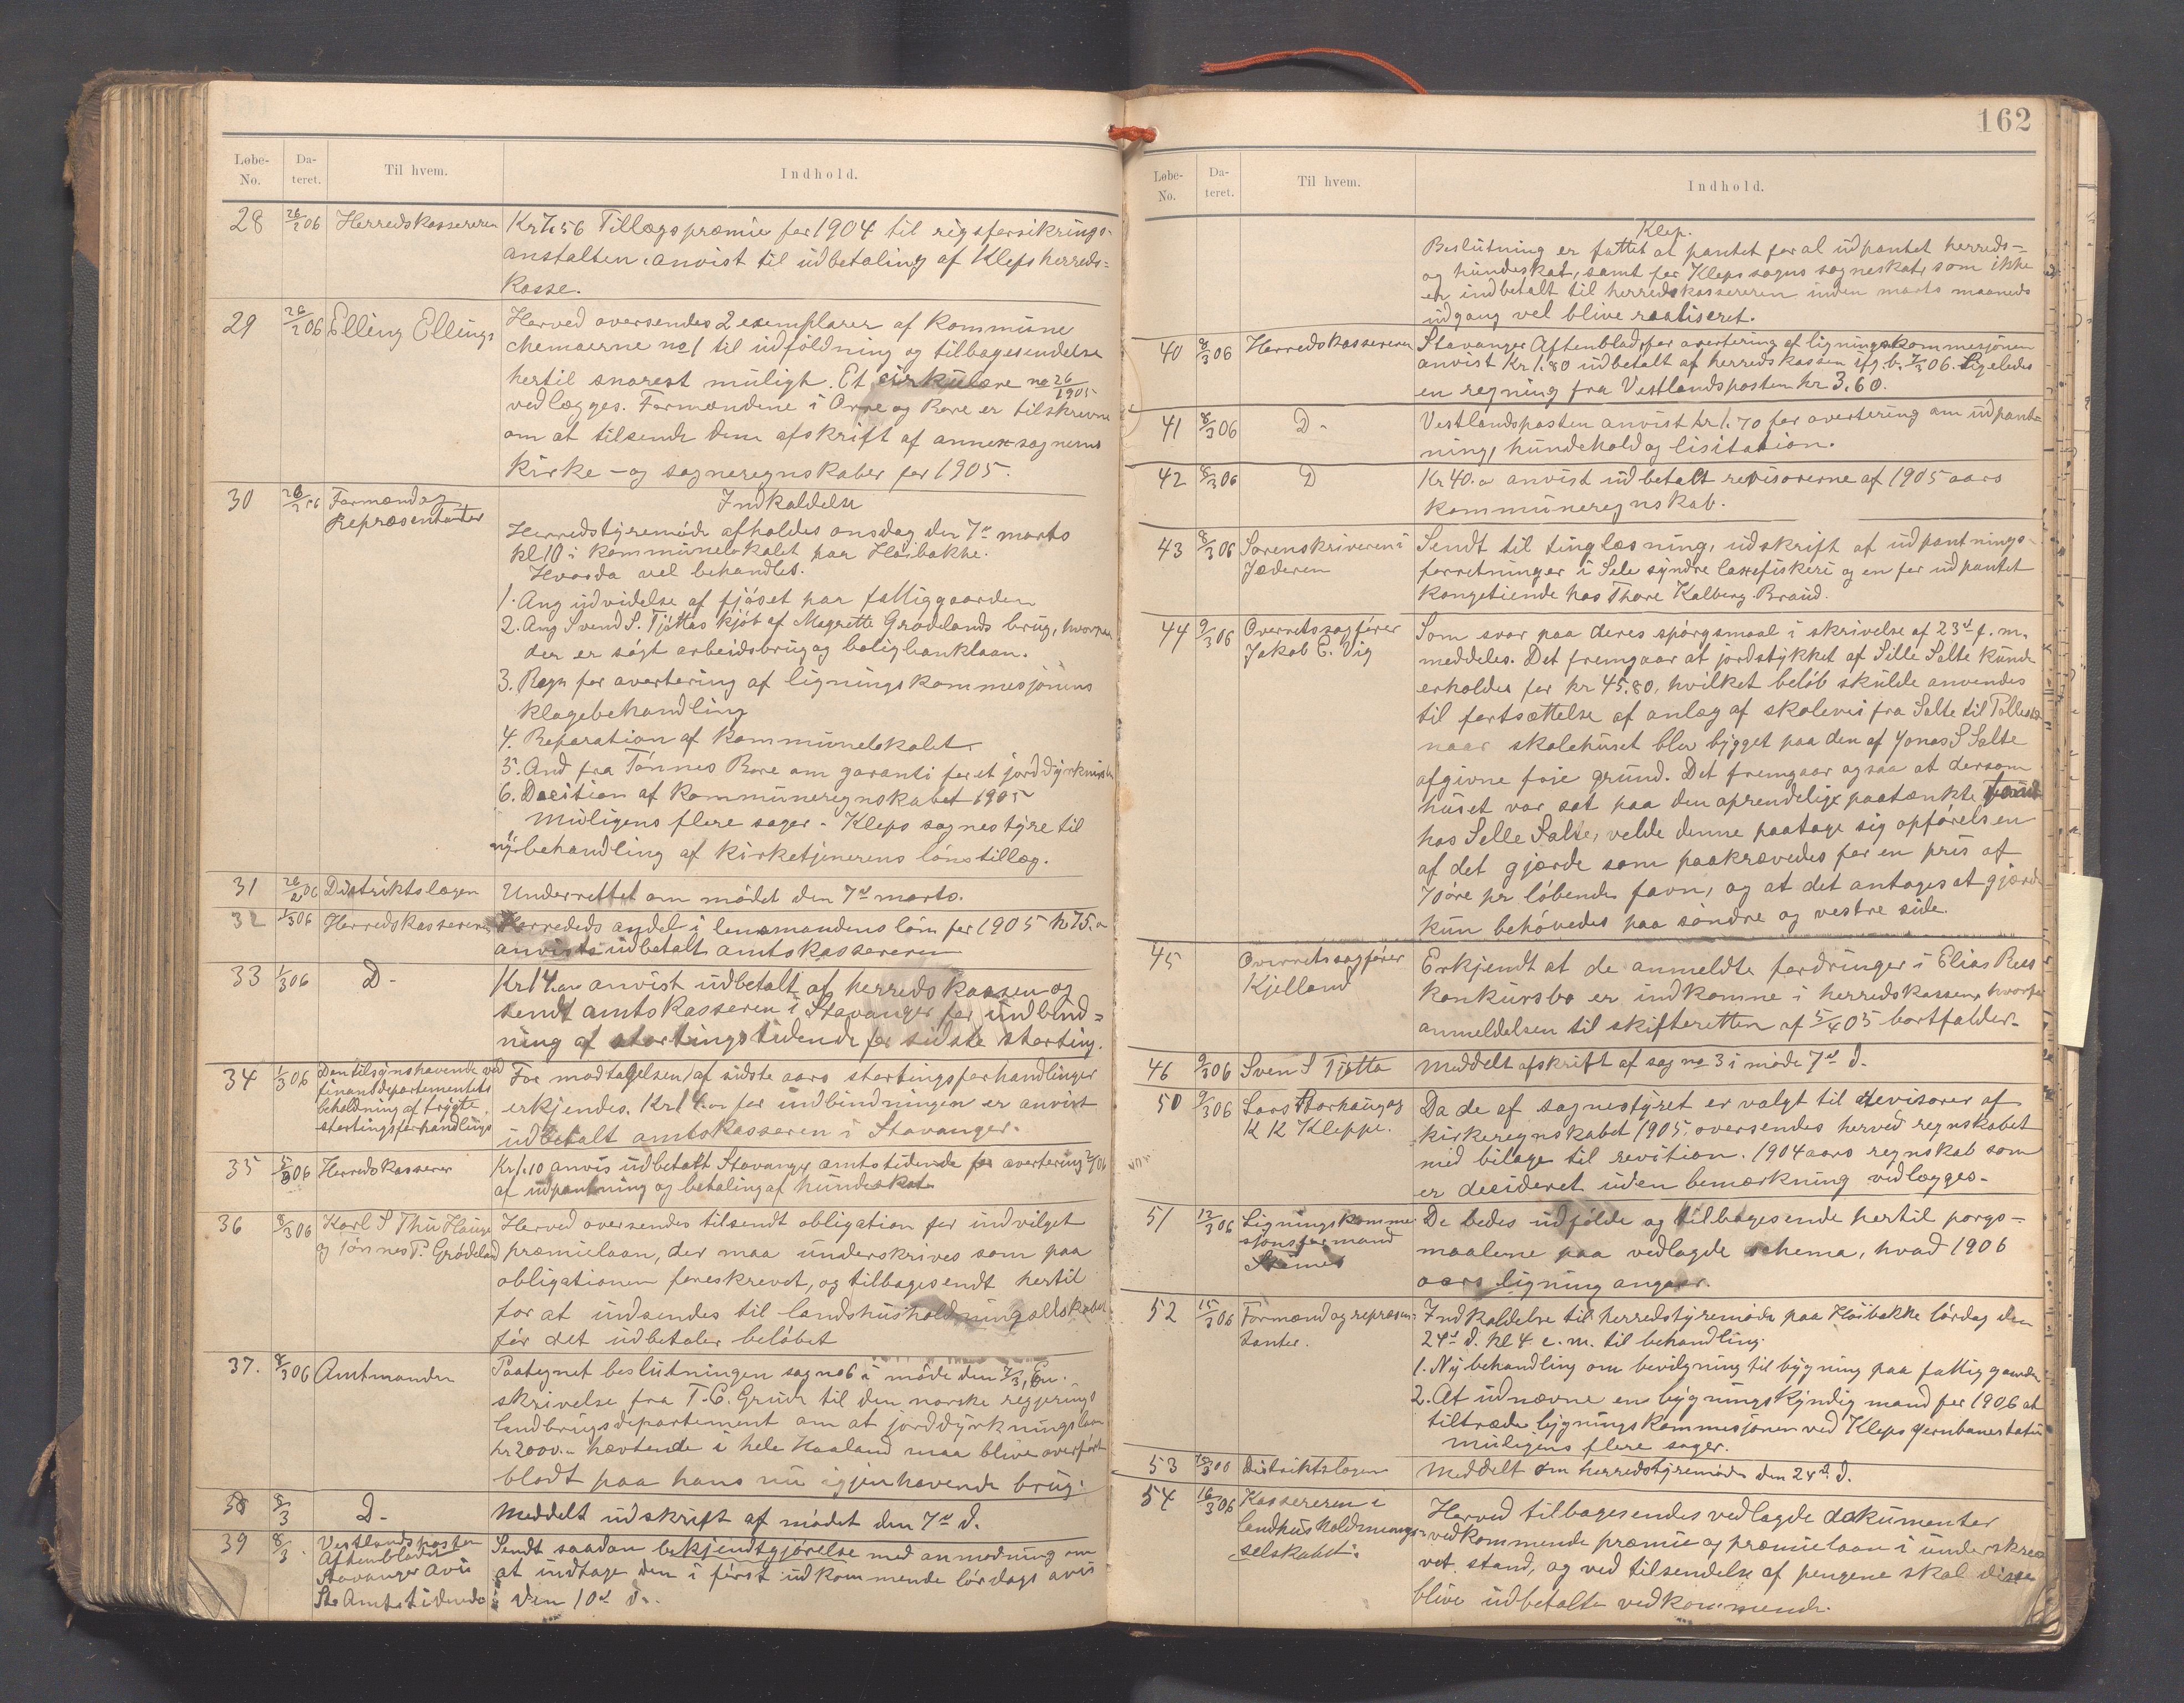 Løbe-No. Da-teret. Til hvem. Indhold.
28 26/2 06 Herredskassereren Kr 7.56 Tillægspræmie for 1904 til rigsforsikrings-
anstalten, anvist til udbetaling af Kleps herreds-
kasse.
29 26/2 06 Elling Ellings Herved oversendes 2 exemplarer af kommune
chemaerne no 1 til udfôldning og tilbagesendelse
hertil snarest muligt. Et cirkulære no 26/1905
vedlægges. Formændene i Orre og Bore er tilskrevne
om at tilsende dem afskrift af annex-sognerns
kirke- og sogneregnskaber for 1905.
30 26/2 06 Formænd og Repræsentanter Indkaldelse
Herredstyremøde afholdes onsdag den 7de marts
kl 10 i kommunelokalet paa Høibakke.
Hvorda vel behandles.
1. Ang udvidelse af fjøset paa fattiggaarden
2. Ang Svend S. Tjøttas kjøb af Magrette Grødelands brug, hvorpaa
der er søgt arbeidsbrug og boligbanklaan.
3. Regn for avertering af ligningskommesjonens
klagebehandling
4. Reparation af kommunelokalet.
5. And fra Tønnes Bore om garanti for et jorddyrknings
6. Decition af kommuneregnskabet 1905
Muligens flere sager. - Kleps sognestyre til
ny behandling af kirketjenerens lønstillæg.
31 26/2 06 Distriktslægen Underrettet om mødet den 7de marts.
32 1/3 06 Herredskassereren Herredets andel i lensmandens løn for 1905 kr 75.-
anvists udbetalt amtskassereren
33 1/3 06 D- Kr 14.00 anvist udbetalt af herredskassen og
sendt amtskasseren i Stavanger for indbind=
ning af stortingstidende for sidste storting.
34 1/3 06 Den tilsynshavende ved
finantdepartementets
beholdning af trygte
stortingsforhandlings For modtagelsen af sidste aars stortingsforhandlinger
erkjendes. Kr 14.00 for indbindningen er anvist
udbetalt amtskasseren i Stavanger.
35 5/3 06 Herredskasserer Kr 1.10 anvis udbetalt Stavanger amtstidende for avertering
af udpantning og betaling af hundeskat
36 8/3 06 Karl S Thu Hauge
og Tønnes P. Grødeland Herved oversendes tilsendt obligation for indvilget
præmielaan, der maa underskrives som paa
obligationen foreskrevet, og tilbagesendt hertil
for at indsendes til landhusholdningselskabet
før det udbetaler beløbet
37. 8/3 06 Amtmanden Paategnet beslutningen sag no 6 i møde den 7/3, En
skrivelse fra T. C. Grude til den norske regjerings
landbrugsdepartement om at jorddyrkningslaan
kr 2000.- hævtende i hele Haaland maa blive overført
blodt paa hans nu igjenhavende brug.
38 8/3 D- Meddelt udskrift af mødet den 7de d.
39 8/3 Vestlandsposten
Aftenbladet
Stavanger Avis
St. Amtstidende Sendt saadan bekjendtgjørelse med anmodning om
at indtage den i først udkommende lørdags avis
den 10de d.
162
Løbe-No. Da-teret. Til hvem. Indhold.
Klep.
Beslutning er fattet at pantet for al udpantet herreds-
og hundeskat, samt for Kleps sogns sogneskat, som ikke
er indbetalt til herredskassereren inden marts maaneds
udgang vel blive realiseret.
40 8/3 06 Herredskassereren Stavanger Aftenblad for avertering af ligningskommesjonen
anvist Kr 1.80 udbetalt af herredskassen ifg. b. 7/3 06. Ligeledes
en regning fra Vestlandsposten kr 3.60.
41 8/3 06 D- Vestlandsposten anvist kr 1.70 for avertering om udpant-
ning, hundehold og lisitation.
42 8/3 06 D Kr 40.- anvist udbetalt revisorerne af 1905 aars
kommuneregnskab.
43 8/3 06 Sorenskriveren i
Jæderen Sendt til tinglæsning, udskrift af udpantnings-
forretninger i Sele syndre laxefiskeri og en for udpantet
kongetiende hos Thore Kalberg Braud.
44 9/3 06 Overretssagfører
Jakob E. Vig Som svar paa deres spørgsmaal i skrivelse af 23de f. m.
meddeles. Det fremgaar at jordstykket af Sille Salte kunde
erholdes for kr 45.80, hvilket beløb skulde anvendes
til fortsættelse af anlæg af skolevei fra Salte til
naar skolehuset blev bygget paa den af Jonas S Salte
afgivne frie grund. Det fremgaar ogsaa at dersom
huset var sat paa den oprendelige paatænkte
hos Selle Salte, velde denne paatage sig opførelsen
af det gjærde som paakrævedes for en pris af
70 øre pr løbende favn, og at det antages at gjærde
kun behøvedes paa søndre og vestre side.
45 Overretssagfører
Kjelland Erkjendt at de anmeldte fordringer i Elias Rees
konkursbo er indkomne i herredskassen, hvorfor
anmeldelsen til skifteretten af 5/4 05 bortfalder.
46 9/3 06 Sven S Tjøtta Meddelt afskrift af sag no 3 i møde 7de d.
50 9/3 06 Lars Storhaug og
K K Kleppe. Da de af sognestyret er valgt til revisorer af
kirkeregnskabet 1905, oversendes herved regnskabet
med bilage til revition. 1904 aars regnskab som
er decideret uden bemærkning vedlægges.
51 12/3 06 Ligningskomme
sjonsformand
De bedes udfølde og tilbagesende hertil porgs-
maalene paa vedlagde schema, hvad 1906
aars ligning angaar.
52 15/3 06 Formænd og repræsen
tanter. Indkaldelse til herredstyremøde paa Høibakke lørdag den
24de d. kl 4 e. m. til behandling.
1. Ny behandling om bevilgning til bygning paa fattiggaarden
2. At udnævne en bygningskyndig mand for 1906 at
tiltræde bygningskommesjonen ved Kleps jernbanestation
Muligens flere sager.
53 Distriktslægen Meddelt om herredstyremøde den 24de d.
54 16/3 06 Kassereren i
landhusholdnings-
selskabet. Herved tilbagesendes vedlagde dokumenter
vedkommende præmie og præmielaan i underskre
vet stand, og ved tilsendelse af pengene skal disse
blive udbetalte vedkommende.